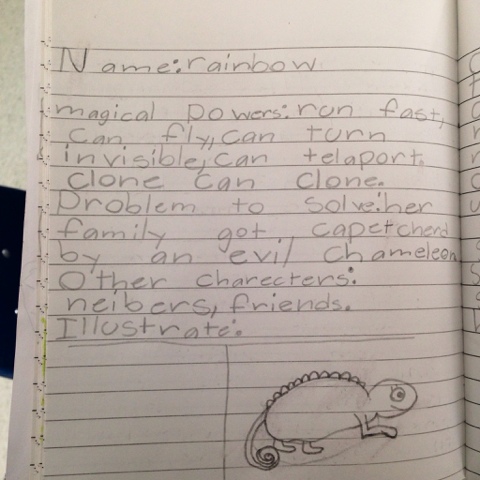 Name: rainbow
magical powers: run fast,
can fly, can turn
invisible, can telaport.
clone can clone.
Problem to solve: her
family got capetcherd
by an evil chameleon
Other charecters:
neibers, friends.
Illustrate: